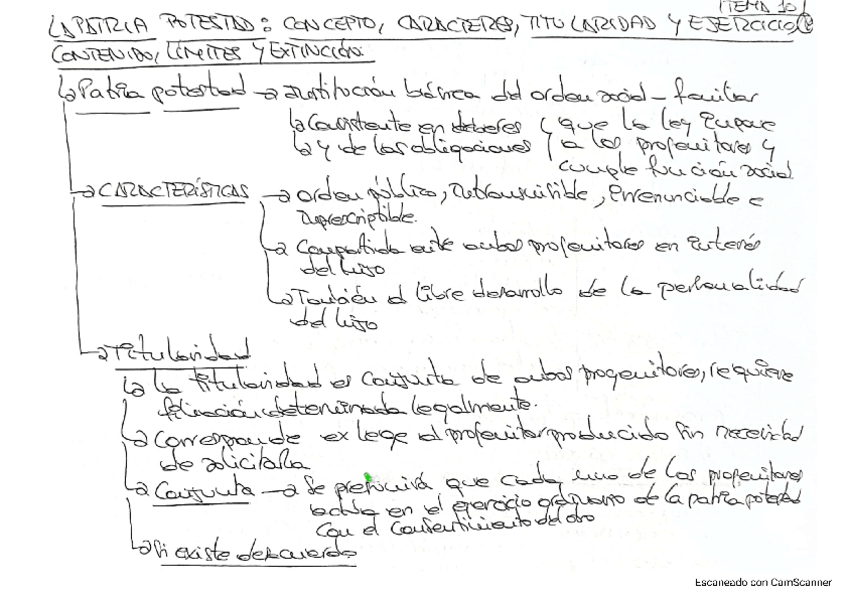 TEMA 10
LA PATRIA POTESTAD: CONCEPTO, CARACTERES, TITULARIDAD Y EJERCICIO
CONTENIDO, LÍMITES Y EXTINCIÓN.
Patria potestad → Institución básica del orden social-familiar
Consistente en deberes que la ley impone
y de las obligaciones a los progenitores y
cumple función social
→ CARACTERÍSTICAS → Orden público, intransmisible, irrenunciable e
imprescriptible.
→ Compartida ante ambos progenitores en interés
del hijo
→ También el libre desarrollo de la personalidad
del hijo
→ Titularidad
la titularidad es conjunta de ambos progenitores, requiere
filiación determinada legalmente.
Corresponde ex lege al progenitor sin necesidad
de solicitarla
→ Conjunta → Se presumirá que cada uno de los progenitores
actúa en el ejercicio ordinario de la patria potestad
con el consentimiento del otro
→ Si existe desacuerdo
Escaneado con CamScanner